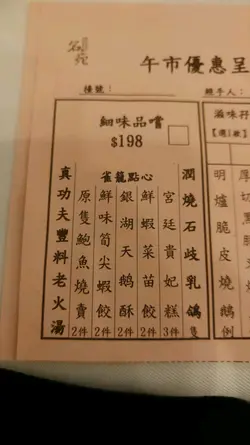 名苑
午市優惠呈
檯號：
經手人：
細味品嚐
$198
滋味孖
真功夫豐料老火湯
雀籠點心
原隻鮑魚燒賣 2件
鮮味筍尖蝦餃 2件
銀湖天鵝酥 2件
鮮蝦菜苗餃 2件
宮廷貴妃糕 3件
潤燒石歧乳鴿 隻
明爐脆皮燒鵝 例